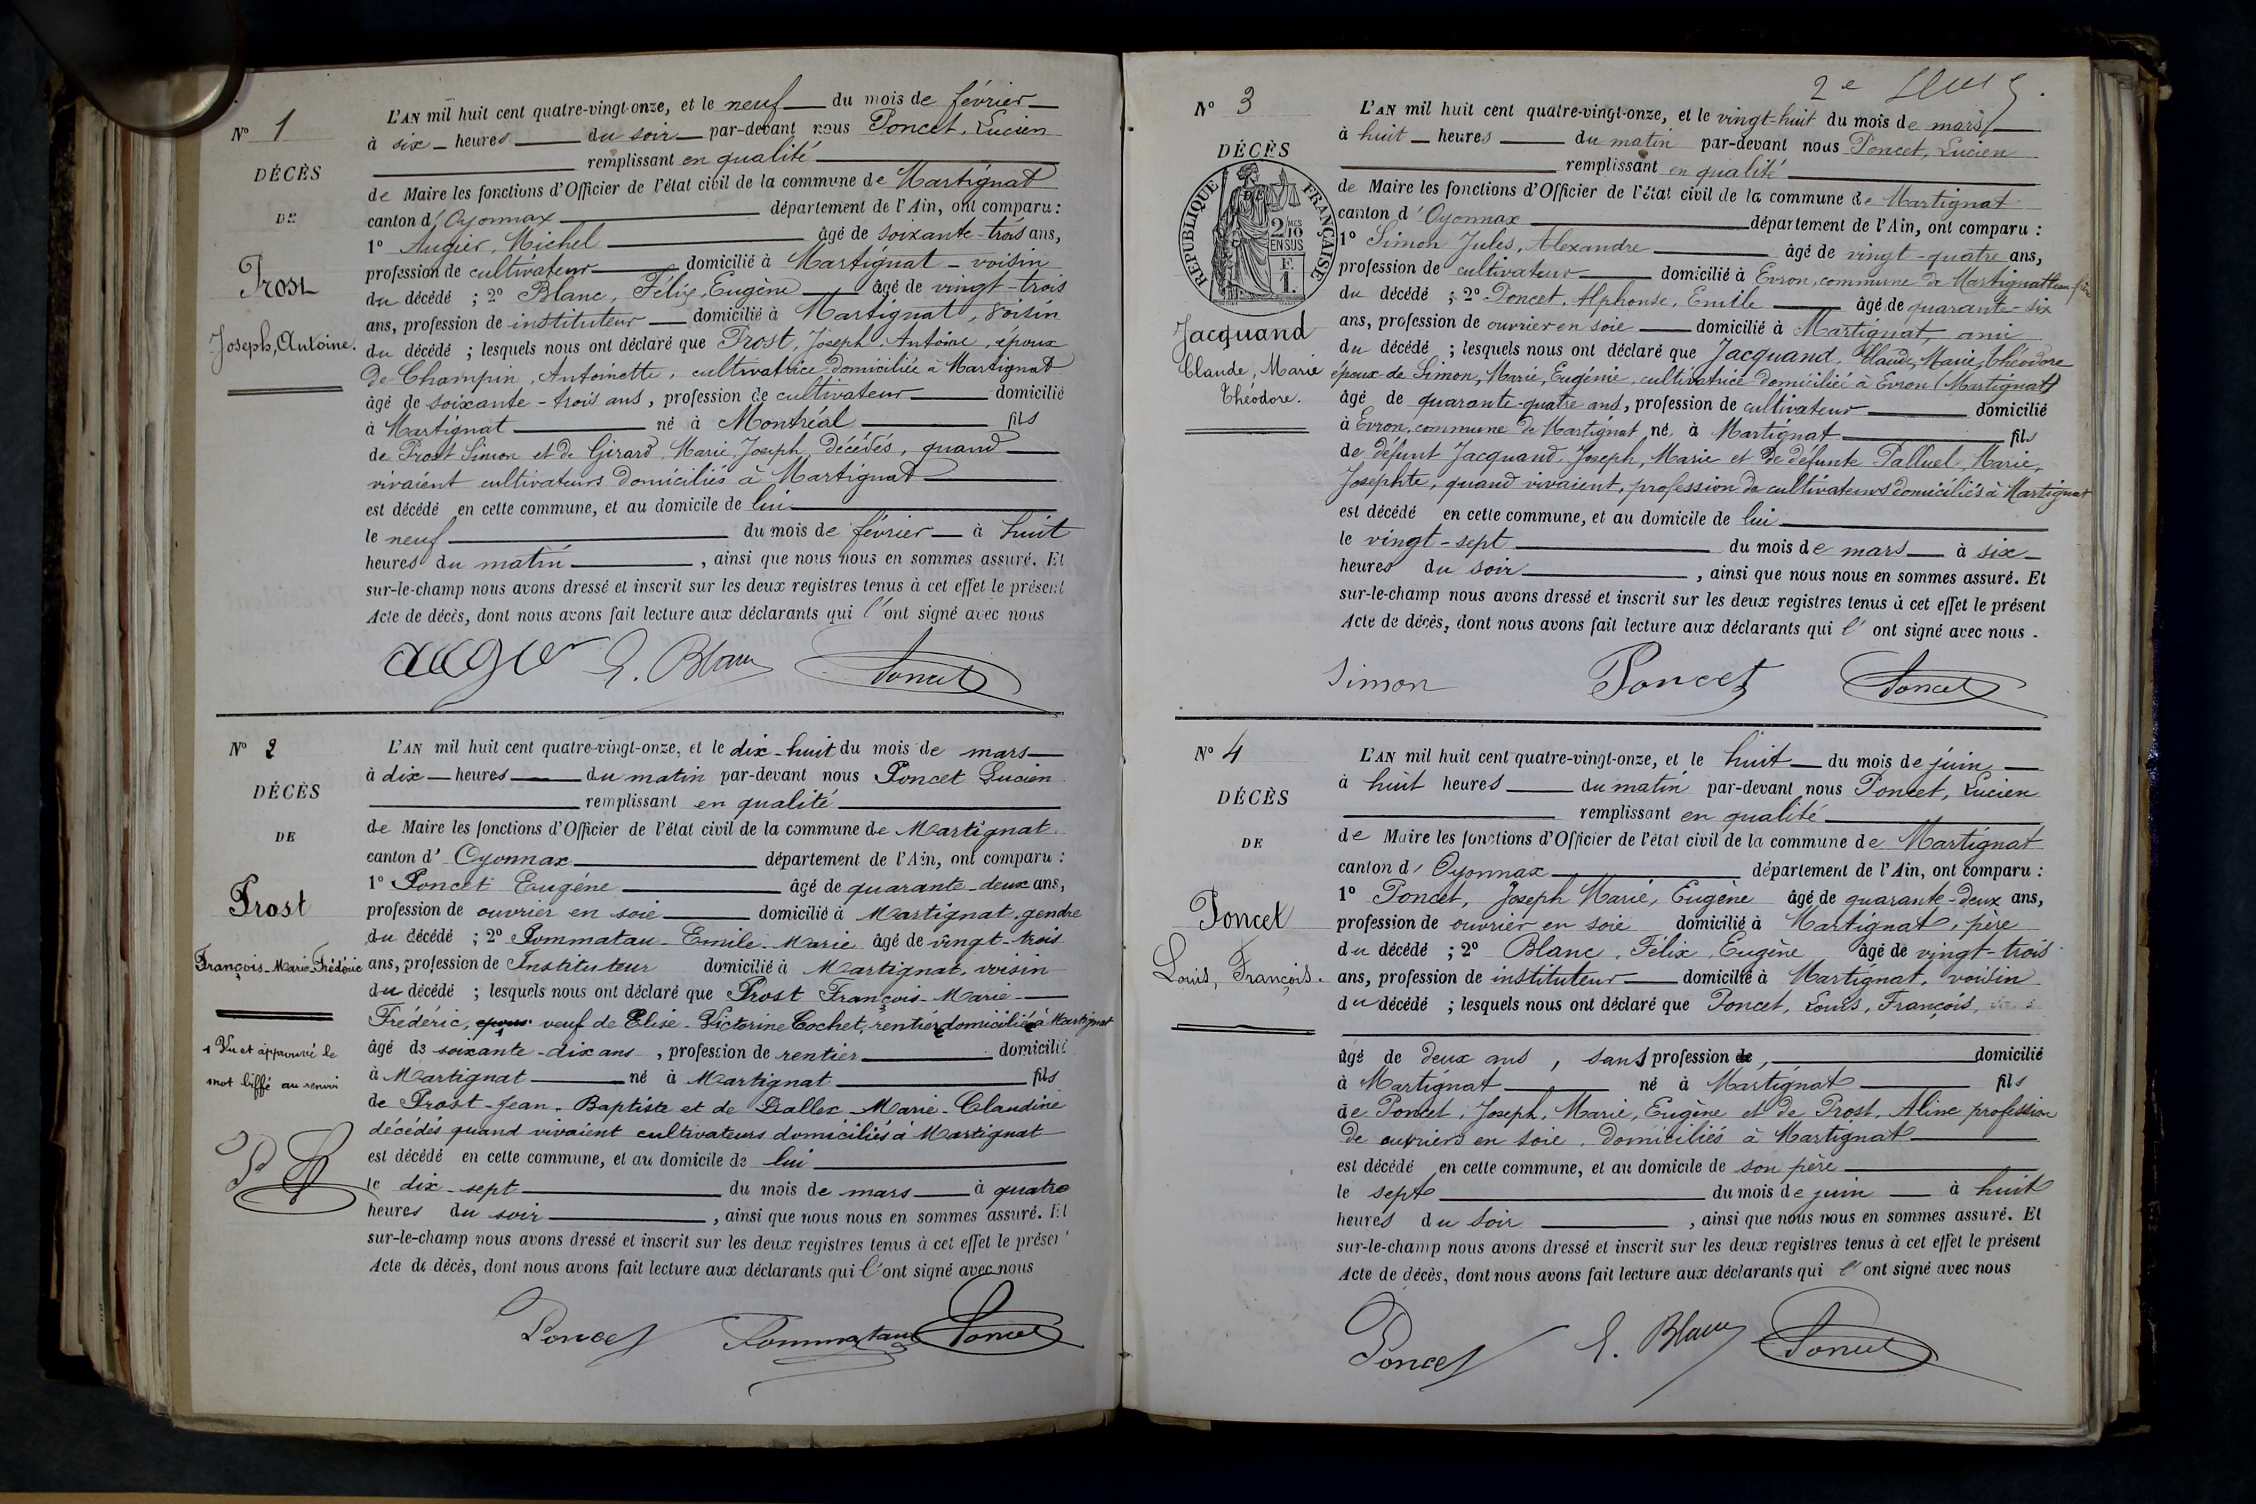 N° 1
DÉCÈS
DE
Prost
Joseph, Antoine.
L'AN mil huit cent quatre-vingt-onze, et le neuf du mois de février
à six heures du soir par-devant nous Poncet, Lucien
remplissant en qualité
de Maire les fonctions d'Officier de l'état civil de la commune de Martignat
canton d'Oyonnax département de l'Ain, ont comparu :
1° Augier, Michel âgé de soixante-trois ans,
profession de cultivateur domicilié à Martignat - voisin
du décédé ; 2° Blanc, Félix, Eugène âgé de vingt-trois
ans, profession de instituteur domicilié à Martignat, voisin
du décédé ; lesquels nous ont déclaré que Prost, Joseph, Antoine, époux
de Champin, Antoinette, cultivatrice domiciliée à Martignat
âgé de soixante-trois ans, profession de cultivateur domicilié
à Martignat né à Montréal fils
de Prost Simon et de Girard, Marie, Joseph, décédés, quand
vivaient cultivateurs domiciliés à Martignat
est décédé en cette commune, et au domicile de lui
le neuf du mois de février à huit
heures du matin, ainsi que nous nous en sommes assuré. Et
sur-le-champ nous avons dressé et inscrit sur les deux registres tenus à cet effet le présent
Acte de décès, dont nous avons fait lecture aux déclarants qui l'ont signé avec nous
augier E. Blanc Poncet
N° 2
DÉCÈS
DE
Prost
François-Marie-Frédéric
Vu et approuvé le
mot biffé au renvoi
L'AN mil huit cent quatre-vingt-onze, et le dix-huit du mois de mars
à dix heures du matin par-devant nous Poncet Lucien
remplissant en qualité
de Maire les fonctions d'Officier de l'état civil de la commune de Martignat
canton d'Oyonnax département de l'Ain, ont comparu :
1° Poncet Eugène âgé de quarante-deux ans,
profession de ouvrier en soie domicilié à Martignat, gendre
du décédé ; 2° Pommatau-Emile-Marie âgé de vingt-trois
ans, profession de Instituteur domicilié à Martignat, voisin
du décédé ; lesquels nous ont déclaré que Prost François-Marie-
Frédéric, époux veuf de Elise-Victorine Cochet, rentier domicilié à Martignat
âgé de soixante-dix ans, profession de rentier domicilié
à Martignat né à Martignat fils
de Prost-Jean-Baptiste et de Lallex-Marie-Claudine
décédés quand vivaient cultivateurs domiciliés à Martignat
est décédé en cette commune, et au domicile de lui
le dix-sept du mois de mars à quatre
heures du soir, ainsi que nous nous en sommes assuré. Et
sur-le-champ nous avons dressé et inscrit sur les deux registres tenus à cet effet le présent
Acte de décès, dont nous avons fait lecture aux déclarants qui l'ont signé avec nous
Poncet Pommatau Poncet
2e
N° 3
DÉCÈS
RÉPUBLIQUE FRANÇAISE
2/10
EN SUS
Jacquand
Claude, Marie
Théodore.
L'AN mil huit cent quatre-vingt-onze, et le vingt-huit du mois de mars
à huit heures du matin par-devant nous Poncet, Lucien
remplissant en qualité
de Maire les fonctions d'Officier de l'état civil de la commune de Martignat
canton d'Oyonnax département de l'Ain, ont comparu :
1° Simon Jules, Alexandre âgé de vingt-quatre ans,
profession de cultivateur domicilié à Evron, commune de Martignat beau-frère
du décédé ; 2° Poncet, Alphonse, Emile âgé de quarante-six
ans, profession de ouvrier en soie domicilié à Martignat, ami
du décédé ; lesquels nous ont déclaré que Jacquand, Claude, Marie, Théodore
époux de Simon, Marie, Eugénie, cultivatrice domiciliée à Evron (Martignat)
âgé de quarante-quatre ans, profession de cultivateur domicilié
à Evron, commune de Martignat né à Martignat fils
de défunt Jacquand, Joseph, Marie et de défunte Palluel, Marie,
Josephte, quand vivaient, profession de cultivateurs domiciliés à Martignat
est décédé en cette commune, et au domicile de lui
le vingt-sept du mois de mars à six
heures du soir, ainsi que nous nous en sommes assuré. Et
sur-le-champ nous avons dressé et inscrit sur les deux registres tenus à cet effet le présent
Acte de décès, dont nous avons fait lecture aux déclarants qui l'ont signé avec nous.
Simon Poncet Poncet
N° 4
DÉCÈS
DE
Poncet
Louis, François.
L'AN mil huit cent quatre-vingt-onze, et le huit du mois de juin
à huit heures du matin par-devant nous Poncet, Lucien
remplissant en qualité
de Maire les fonctions d'Officier de l'état civil de la commune de Martignat
canton d'Oyonnax département de l'Ain, ont comparu :
1° Poncet, Joseph Marie, Eugène âgé de quarante-deux ans,
profession de ouvrier en soie domicilié à Martignat, père
du décédé ; 2° Blanc, Félix, Eugène âgé de vingt-trois
ans, profession de instituteur domicilié à Martignat, voisin
du décédé ; lesquels nous ont déclaré que Poncet, Louis, François,
âgé de deux ans, sans profession de, domicilié
à Martignat né à Martignat fils
de Poncet, Joseph, Marie, Eugène et de Prost, Aline profession
de ouvriers en soie, domiciliés à Martignat
est décédé en cette commune, et au domicile de son père
le sept du mois de juin à huit
heures du soir, ainsi que nous nous en sommes assuré. Et
sur-le-champ nous avons dressé et inscrit sur les deux registres tenus à cet effet le présent
Acte de décès, dont nous avons fait lecture aux déclarants qui l'ont signé avec nous
Poncet E. Blanc Poncet